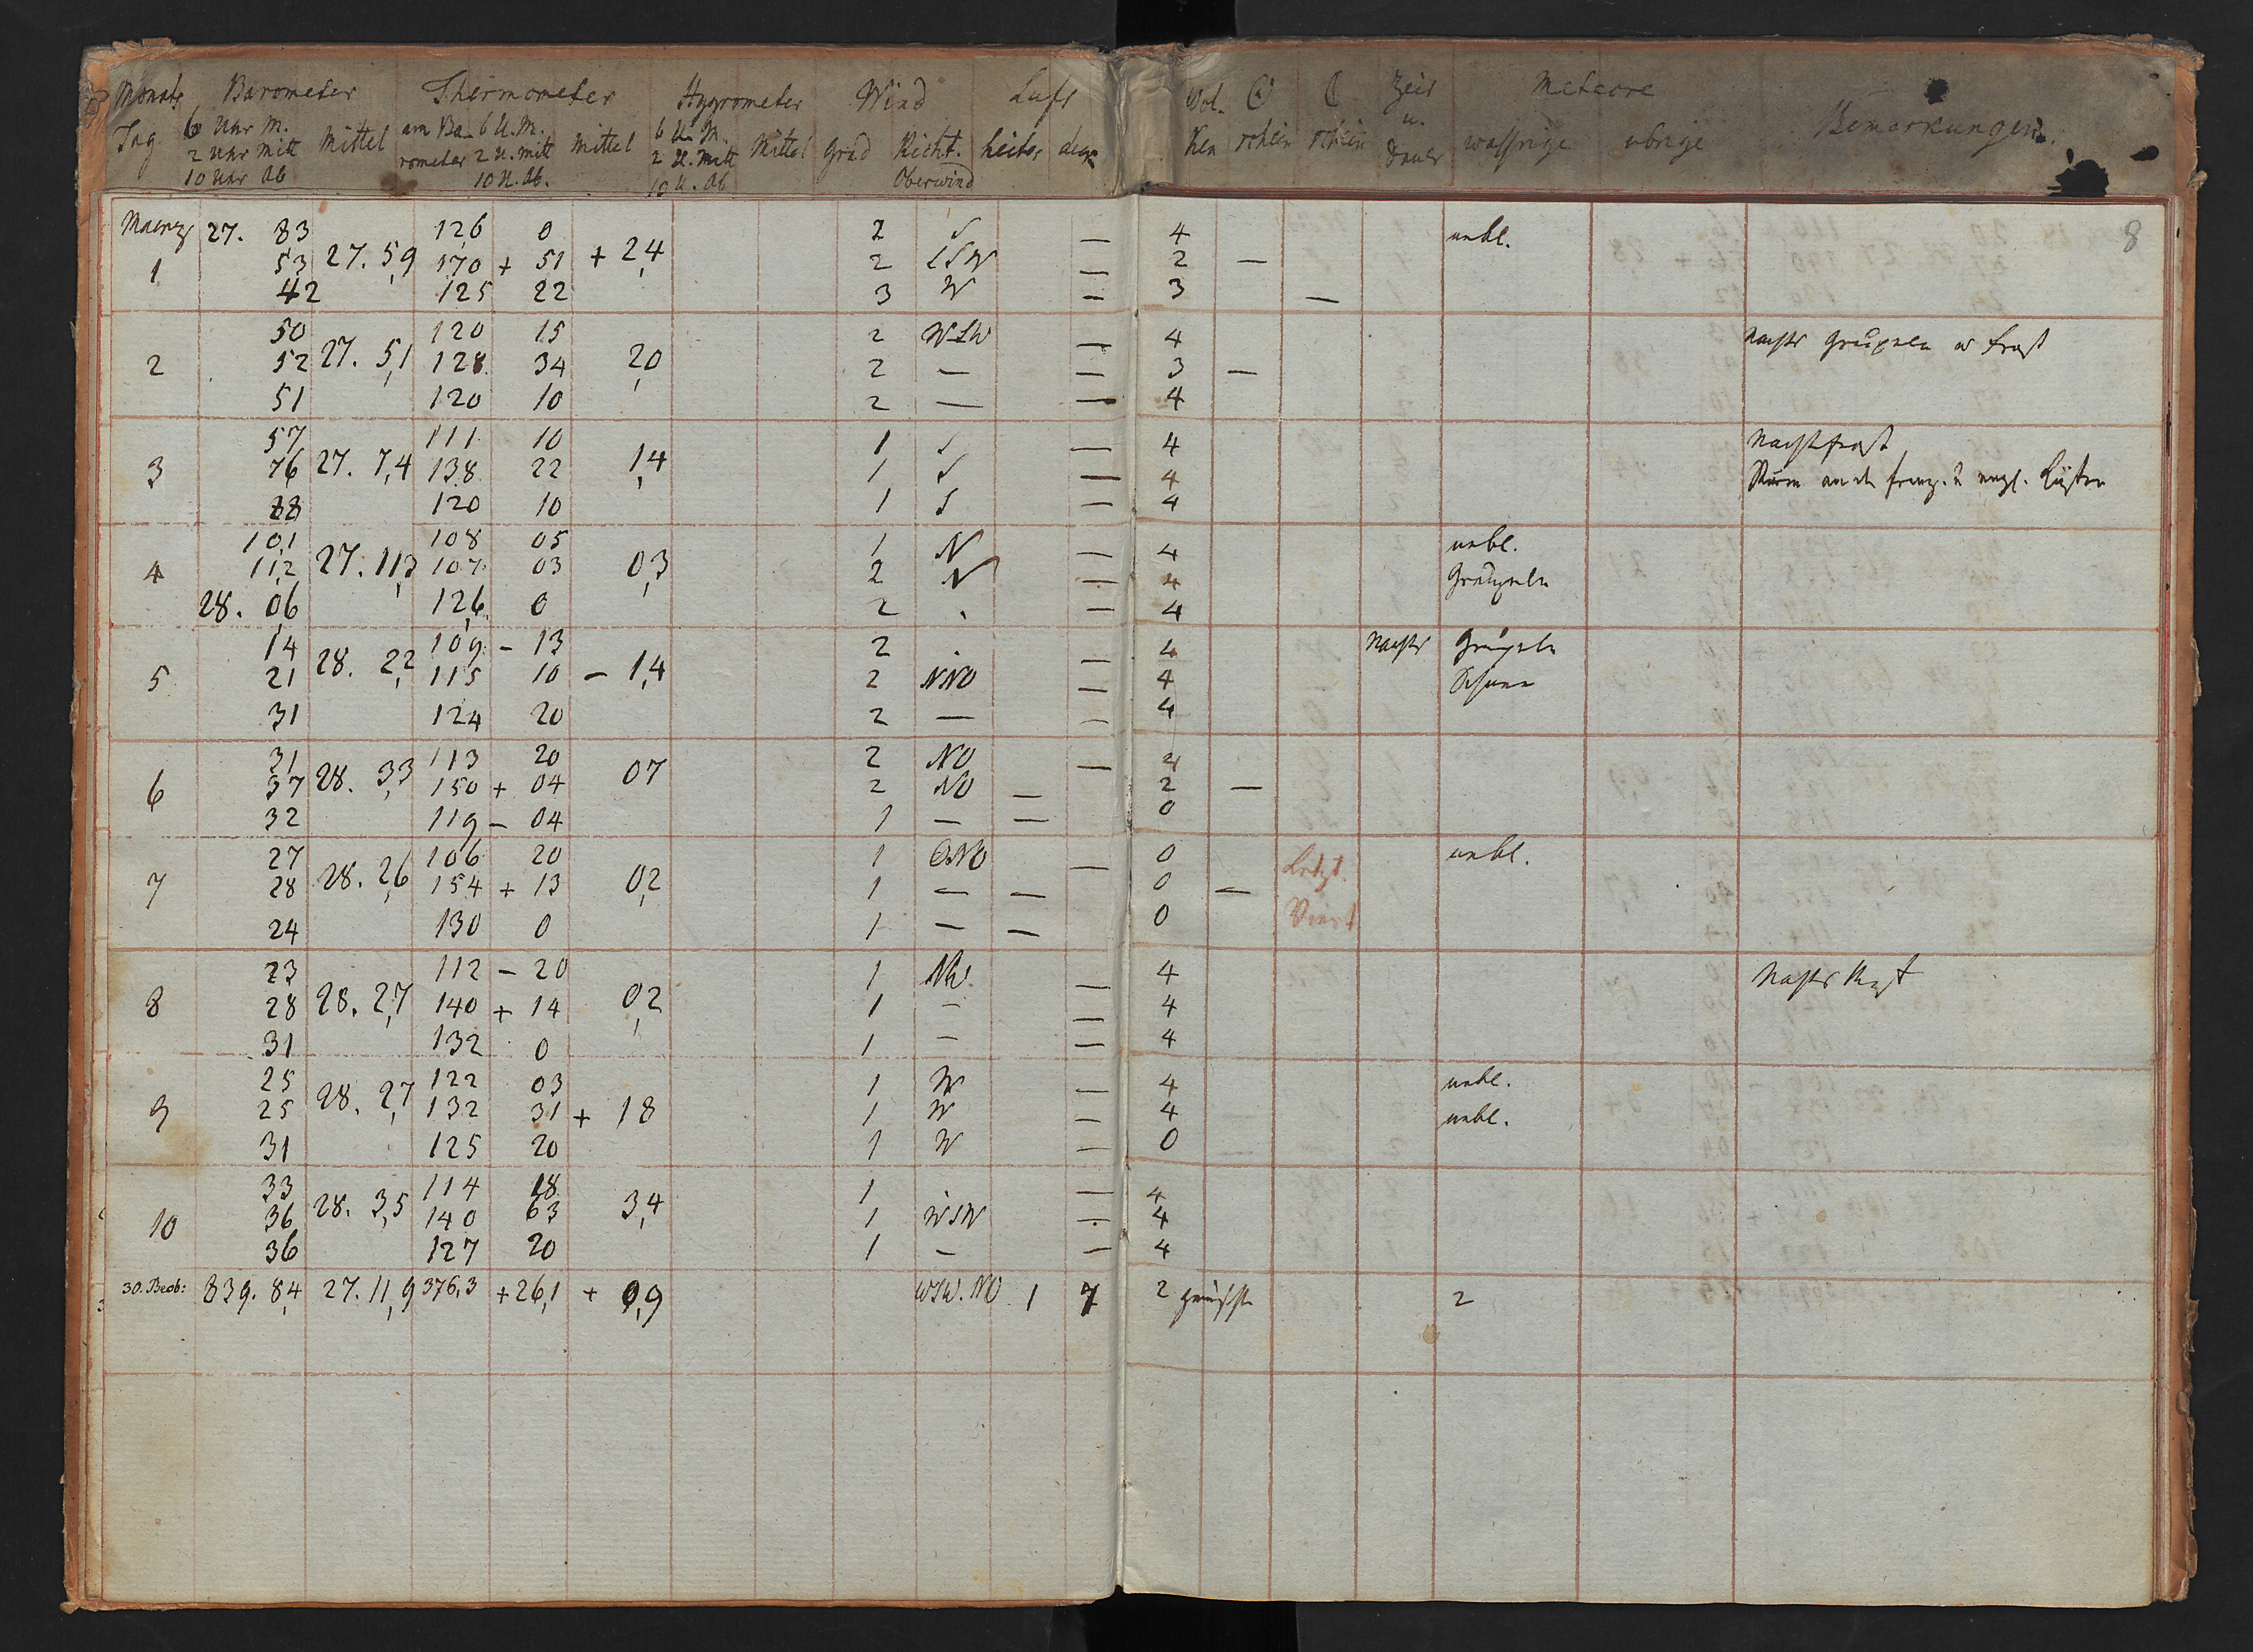 Monats Barometer Thermometer Hygrometer Wind Luft Wol- ☉ ☾ Zeit Meteore
Tag 6 Uhr M. Mittel am Ba- 6 U. M. Mittel 6 U. M. Mittel Grad Richt. heiter ken schein schein u. wässrige übrige Bemerkungen.
2 Uhr Mitt rometer 2 U. Mitt 2 U. Mitt Dauer
10 Uhr Ab 10 U. Ab. 10 U. Ab Oberwind
Maerz 27. 83 126 0 2 S — 4 unbl. 8
1 53 27. 5,9 170 + 51 + 2,4 2 SSW — 2 —
42 125 22 3 W — 3 —
50 120 15 2 WSW — 4 Nachts Graupeln u Frost
2 52 27. 5,1 128 34 2,0 2 — — 3 —
51 120 10 2 — — 4
57 111 10 1 S — 4 Nachtfrost
3 76 27. 7,4 138 22 1,4 1 S — 4 Sturm an d. franz. u engl. Küsten
88 120 10 1 S — 4
10,1 108 05 1 N — 4 unbl.
4 11,2 27. 11,3 107 03 0,3 2 N — 4 Graupeln
28. 0,6 126 0 2 — 4
14 109 – 13 2 — 4 Nachts Graupeln
5 21 28. 2,2 115 10 – 1,4 2 NNO — 4 Schnee
31 124 20 2 — — 4
31 113 20 2 NO — 4
6 37 28. 3,3 150 + 04 07 2 NO — 2 —
32 119 – 04 1 — — 0
27 106 20 1 ONO — 0 Letzt. unbl.
7 28 28. 2,6 154 + 13 0,2 1 — — 0 —
24 130 0 1 — — 0 Viert
23 112 – 20 1 NW — 4 Nachts
8 28 28. 2,7 140 + 14 0,2 1 – — 4
31 132 0 1 – — 4
25 122 03 1 W — 4 unbl.
9 25 28. 2,7 132 31 + 18 1 W — 4 unbl.
31 125 20 1 W — 0
33 114 18 1 — 4
10 36 28. 3,5 140 63 3,4 1 WSW — 4
36 127 20 1 – — 4
30. Beob: 839. 8,4 27. 11,9 376,3 + 26,1 + 0,9 WSW. NO 1 7 2 gemischt 2